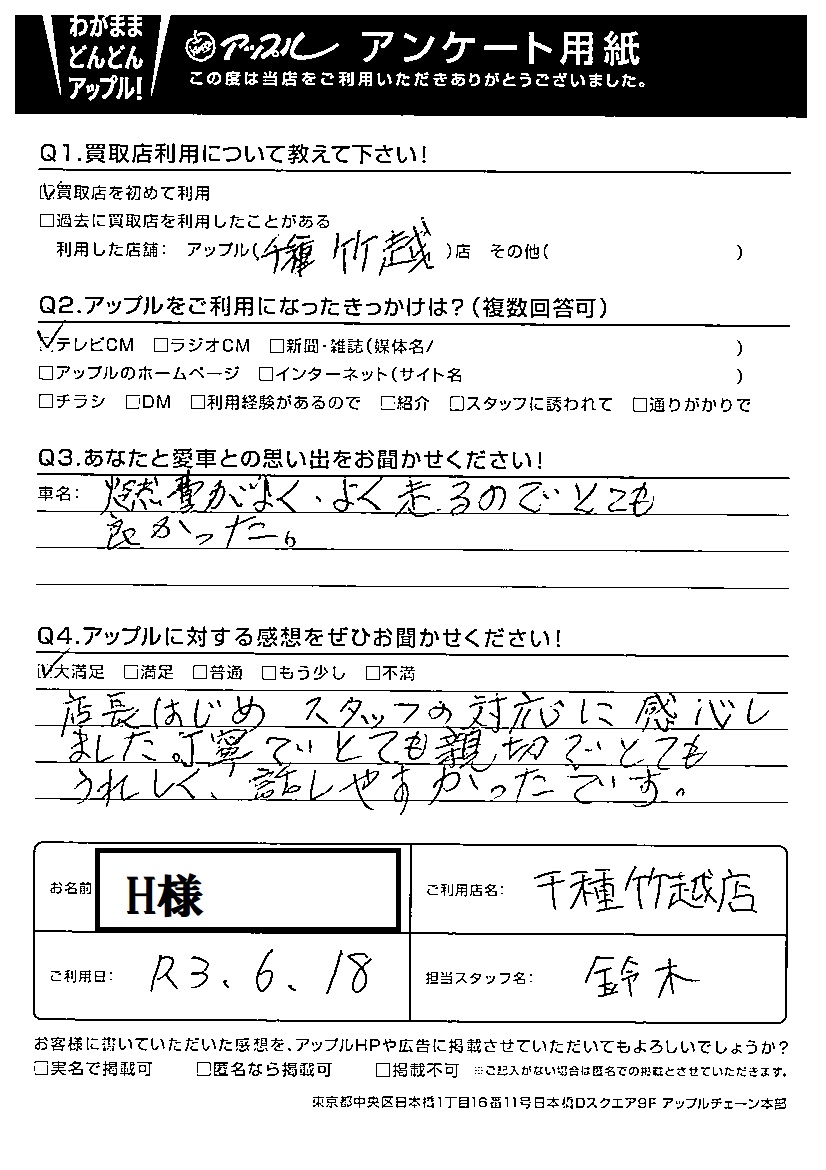 わがまま
どんどん
アップル!
アップル アンケート用紙
この度は当店をご利用いただきありがとうございました。
Q1.買取店利用について教えて下さい!
☑買取店を初めて利用
□過去に買取店を利用したことがある
利用した店舗: アップル(千種 竹越 )店 その他( )
Q2.アップルをご利用になったきっかけは?(複数回答可)
☑テレビCM □ラジオCM □新聞・雑誌(媒体名/ )
□アップルのホームページ □インターネット(サイト名 )
□チラシ □DM □利用経験があるので □紹介 □スタッフに誘われて □通りがかりで
Q3.あなたと愛車との思い出をお聞かせください!
車名: 燃費がよく、よく走るのでとても
良かった。
Q4.アップルに対する感想をぜひお聞かせください!
☑大満足 □満足 □普通 □もう少し □不満
店長はじめ スタッフの対応に感心し
ました。丁寧でとても親切でとても
うれしく、話しやすかったです。
お名前 H様
ご利用店名: 千種竹越店
ご利用日: R3、6、18
担当スタッフ名: 鈴木
お客様に書いていただいた感想を、アップルHPや広告に掲載させていただいてもよろしいでしょうか?
□実名で掲載可 □匿名なら掲載可 □掲載不可 ※ご記入がない場合は匿名での掲載とさせていただきます。
東京都中央区日本橋1丁目16番11号日本橋Dスクエア9F アップルチェーン本部